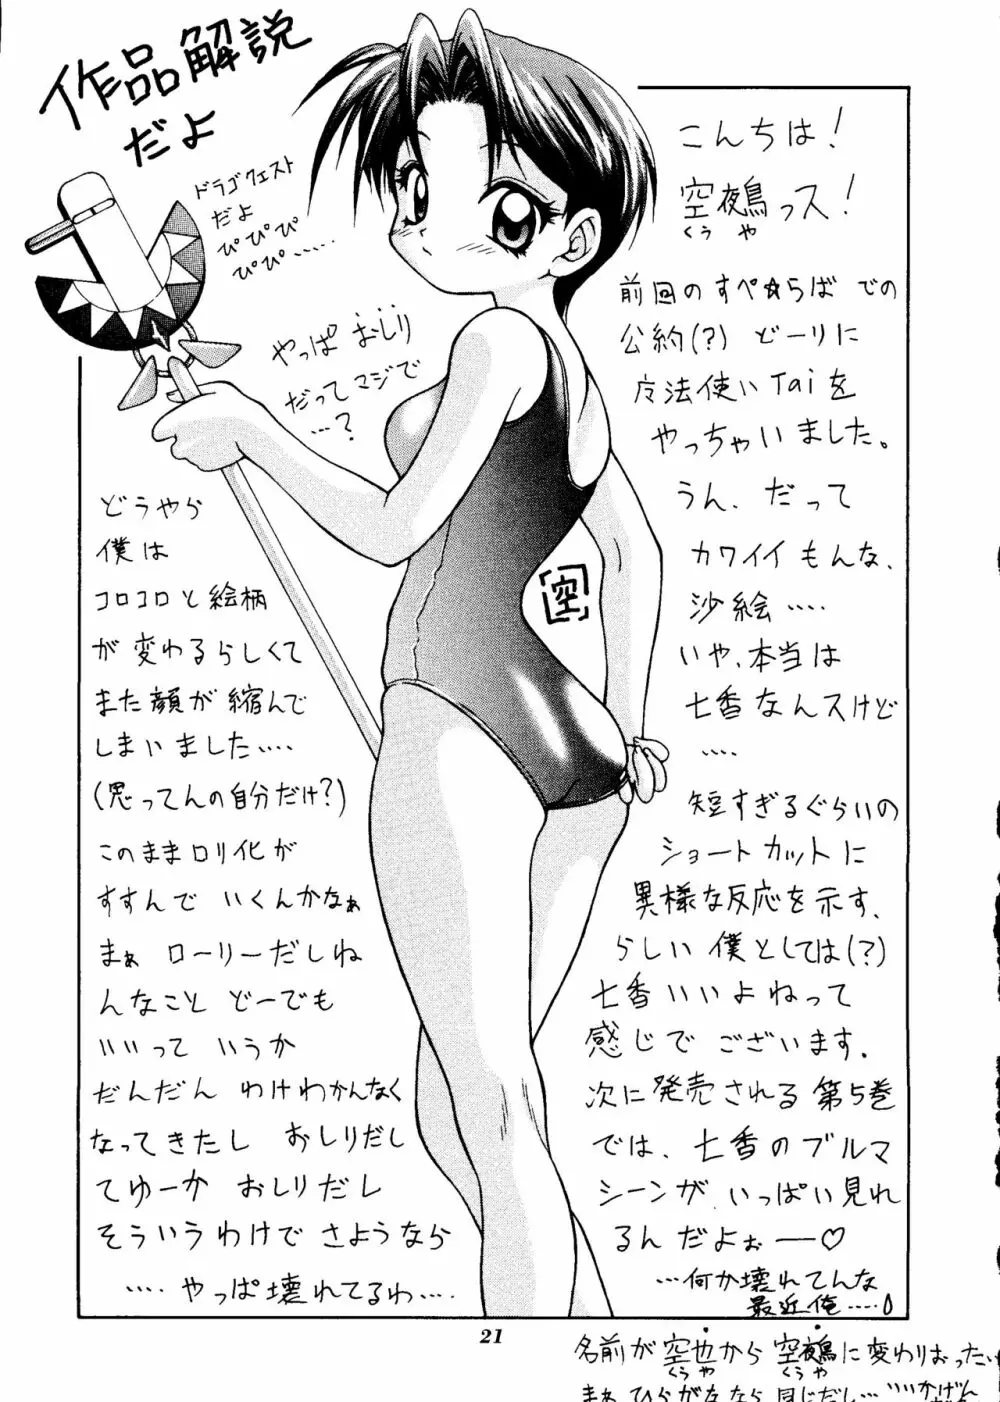 作品解説
だよ
ドラゴクエスト
だよ
ぴぴぴ
ぴぴ……
やっぱ おしり
だってマジで
…?
こんちは!
空鵺っス!
くうや
前回のすぺ☆らば での
公約(?) どーりに
魔法使いTaiを
やっちゃいました。
うん、だって
カワイイもんな、
沙絵……
いや、本当は
七香なんスけど
……
短すぎるぐらいの
ショートカットに
異様な反応を示す、
らしい 僕としては(?)
七香いいよねって
感じでございます。
次に発売される第5巻
では、七香のブルマ
シーンが、いっぱい見れ
るんだよぉー♡
…何か壊れてんな
最近俺……
どうやら
僕は
コロコロと絵柄
が変わるらしくて
また顔が縮んで
しまいました….
(思ってんの自分だけ?)
このままロリ化が
すすんで いくんかなぁ
まぁ ローリーだしね
んなこと どーでも
いいって いうか
だんだん わけわかんなく
なってきたし おしりだし
てゆーか おしりだし
そういうわけで さようなら
…. やっぱ壊れてるわ….
空
21
名前が空也から 空鵺に変わりおった
くうや くうや
まぁ ひらがななら 同じだし… いいかげん